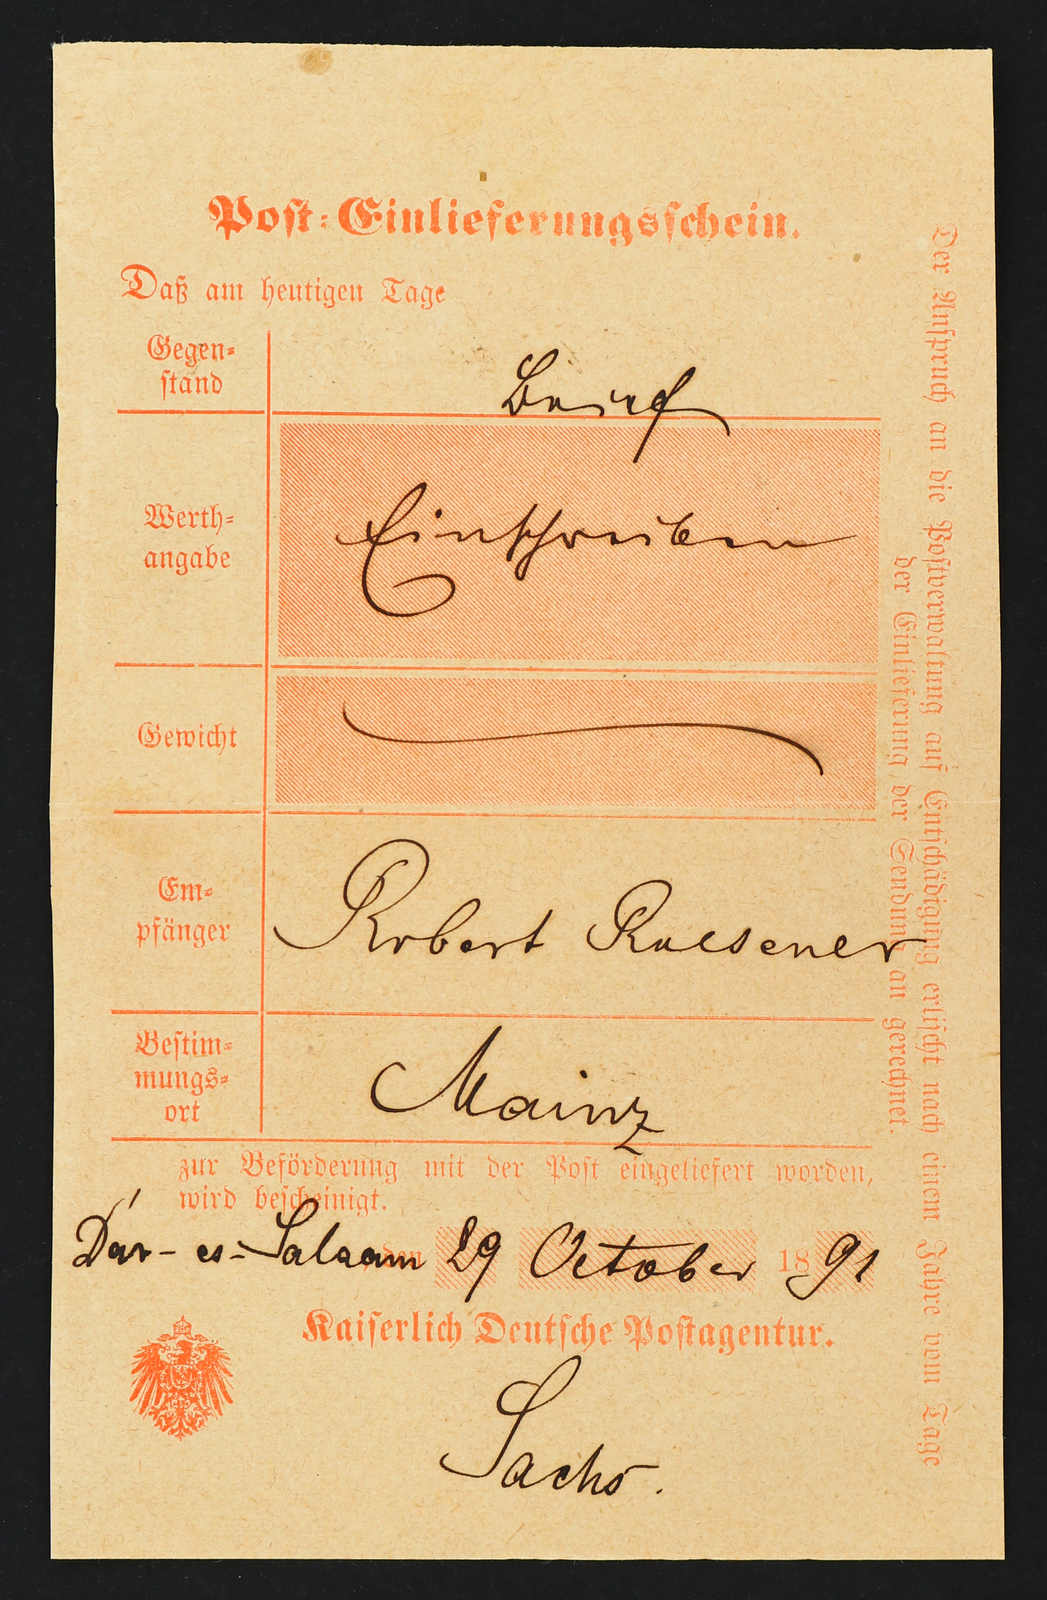 Post-Einlieferungsschein.
Daß am heutigen Tage
Gegen-
stand
Brief
Werth-
angabe
Einschreiben
Gewicht
Em-
pfänger
Robert
Bestim-
mungs-
ort
Mainz
zur Beförderung mit der Post eingeliefert worden,
wird bescheinigt.
Dar-es-Salaam, den 29 October 1891
Kaiserlich Deutsche Postagentur.
Sachs.
Der Anspruch an die Postverwaltung auf Entschädigung erlischt nach einem Jahre vom Tage
der Einlieferung der Sendung an gerechnet.